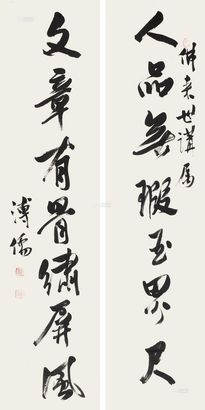 人品無瑕玉界尺
来世講属
文章有骨繡屏風
溥儒